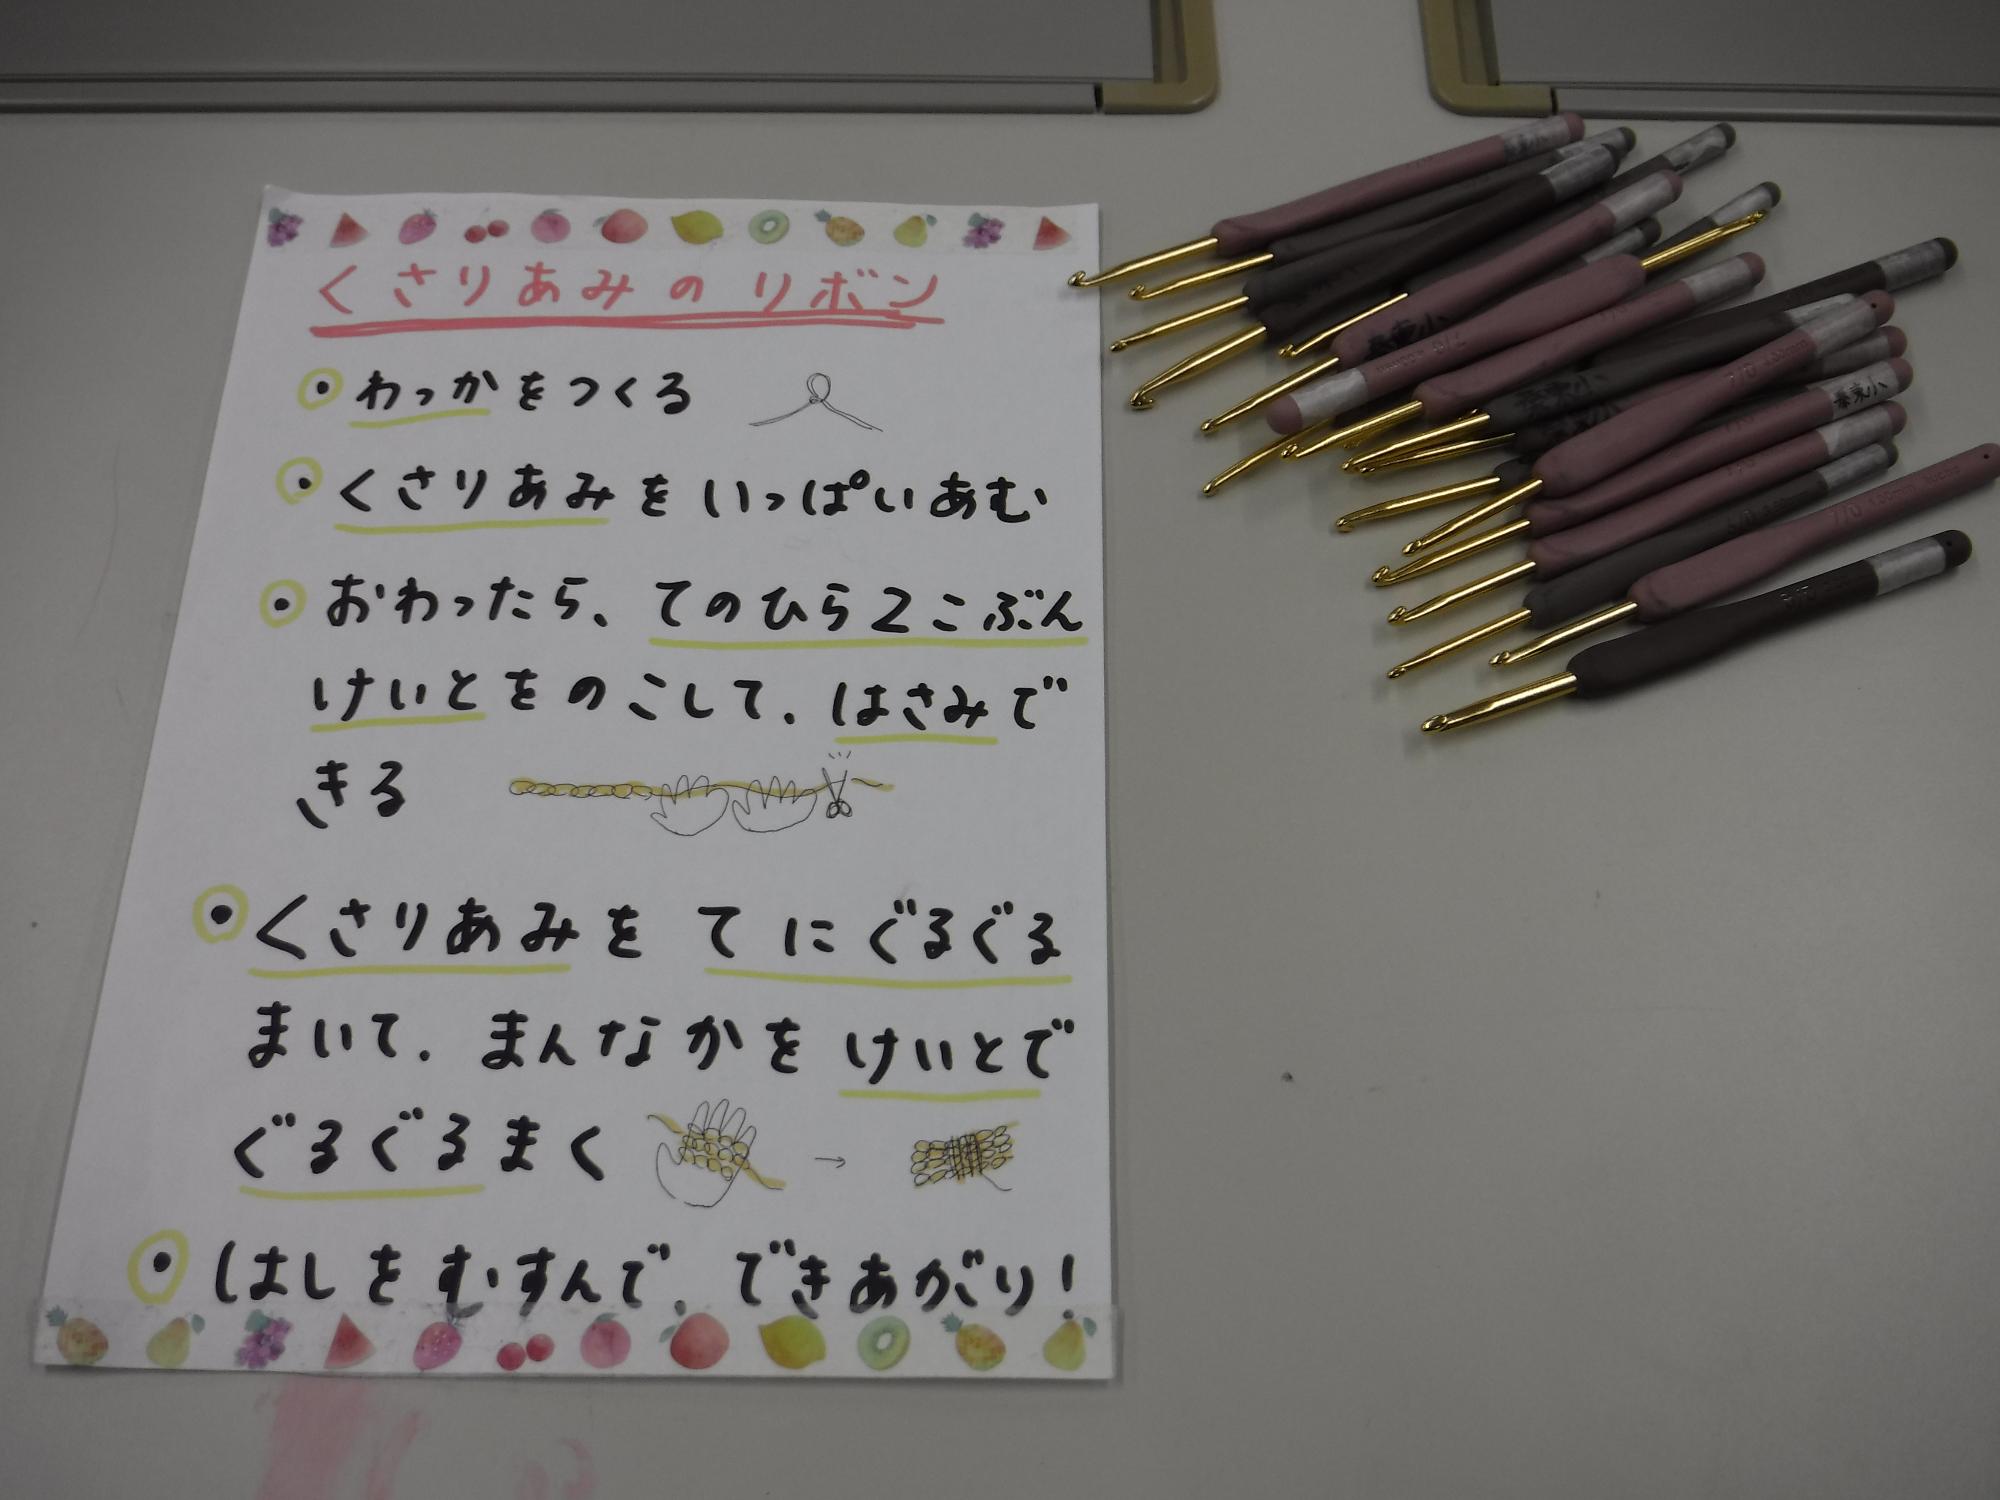 くさりあみのリボン
わっかをつくる
くさりあみをいっぱいあむ
おわったら、てのひら2こぶん
けいとをのこして、はさみで
きる
くさりあみを てに ぐるぐる
まいて、まんなかをけいとで
ぐるぐるまく
はしをむすんで、できあがり!
7/0